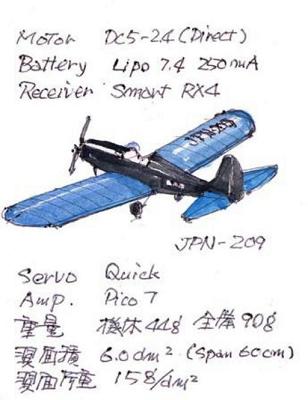 Motor DC5-2.4 (Direct)
Battery Lipo 7.4 250mA
Receiver Smart RX4
JPN-209
JPN-209
Servo Quick
Amp. Pico 7
重量 機体44g 全備90g
翼面積 6.0dm² (Span 60cm)
翼面荷重 15g/dm²